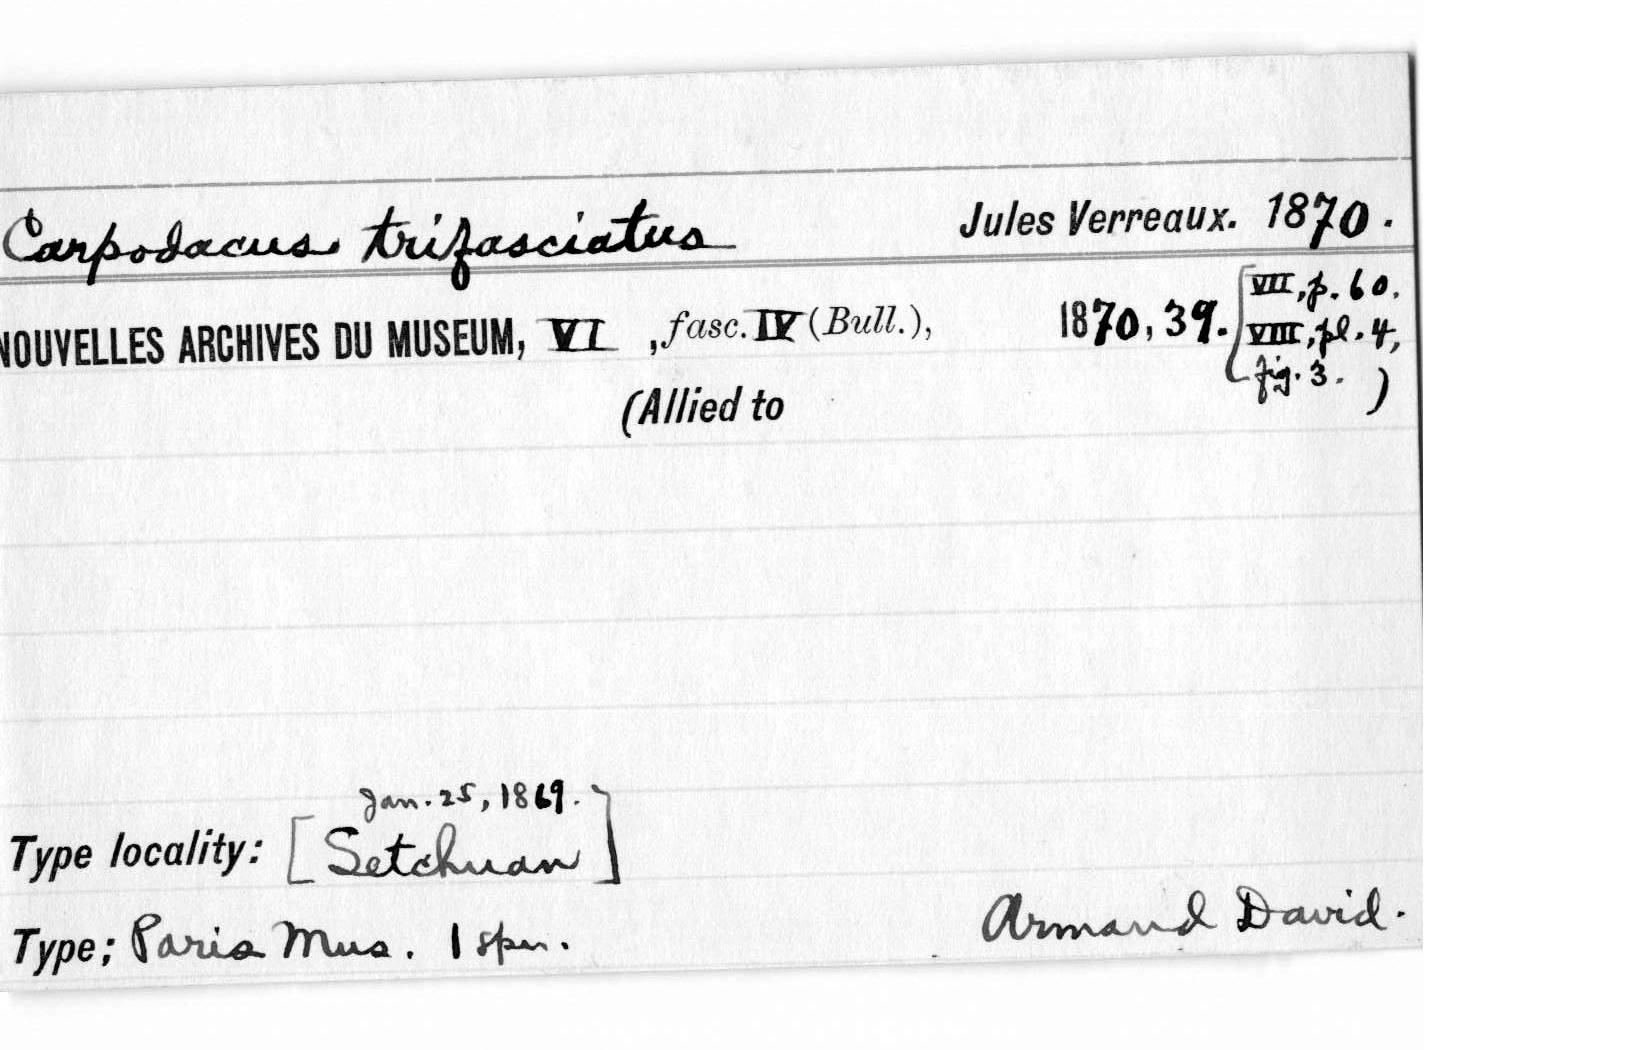 Carpodacus trifasciatus Jules Verreaux. 1870.
NOUVELLES ARCHIVES DU MUSEUM, VI, fasc. IV (Bull.), 1870, 39. [VII, p. 60.
VIII, pl. 4,
fig. 3. )
(Allied to
Jan. 25, 1869.
Type locality: [Setchuan]
Type; Paris Mus. 1 spm. Armand David.